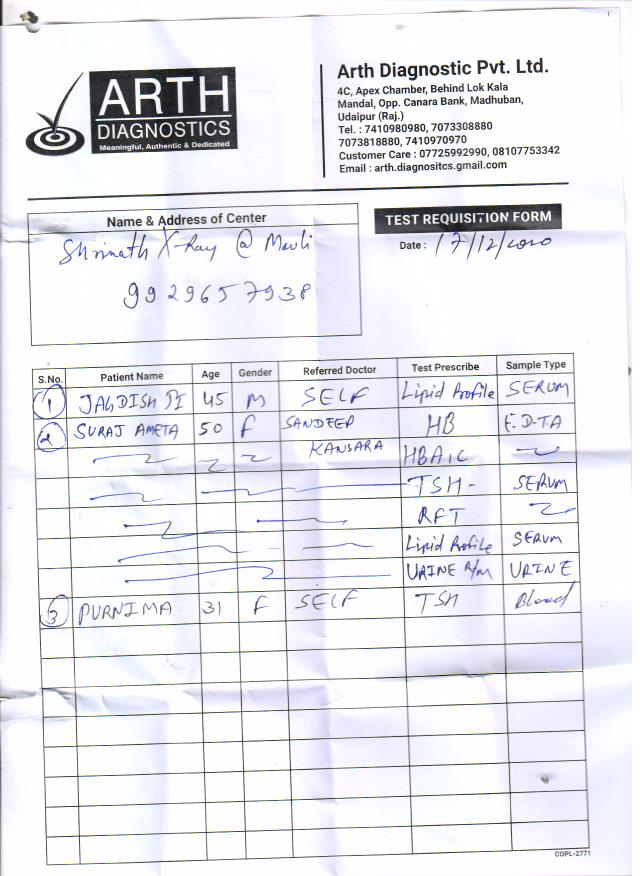 ARTH
DIAGNOSTICS
Meaningful, Authentic & Dedicated
Arth Diagnostic Pvt. Ltd.
4C, Apex Chamber, Behind Lok Kala
Mandal, Opp. Canara Bank, Madhuban,
Udaipur (Raj.)
Tel. : 7410980980, 7073308880
7073818880, 7410970970
Customer Care : 07725992990, 08107753342
Email : arth.diagnositcs.gmail.com
Name & Address of Center
Shrinath X-Ray @ Mavli
9929657938
TEST REQUISITION FORM
Date : 17/12/2020
S.No. Patient Name Age Gender Referred Doctor Test Prescribe Sample Type
1 JAGDISH JI 45 M SELF Lipid Profile SERUM
2 SURAJ AMETA 50 F SANDEEP HB E.D-TA
KANSARA HBA1C
TSH- SERUM
RFT
Lipid Profile SERUM
URINE R/M URINE
3 PURNIMA 31 F SELF TSH Blood
COPL-2771